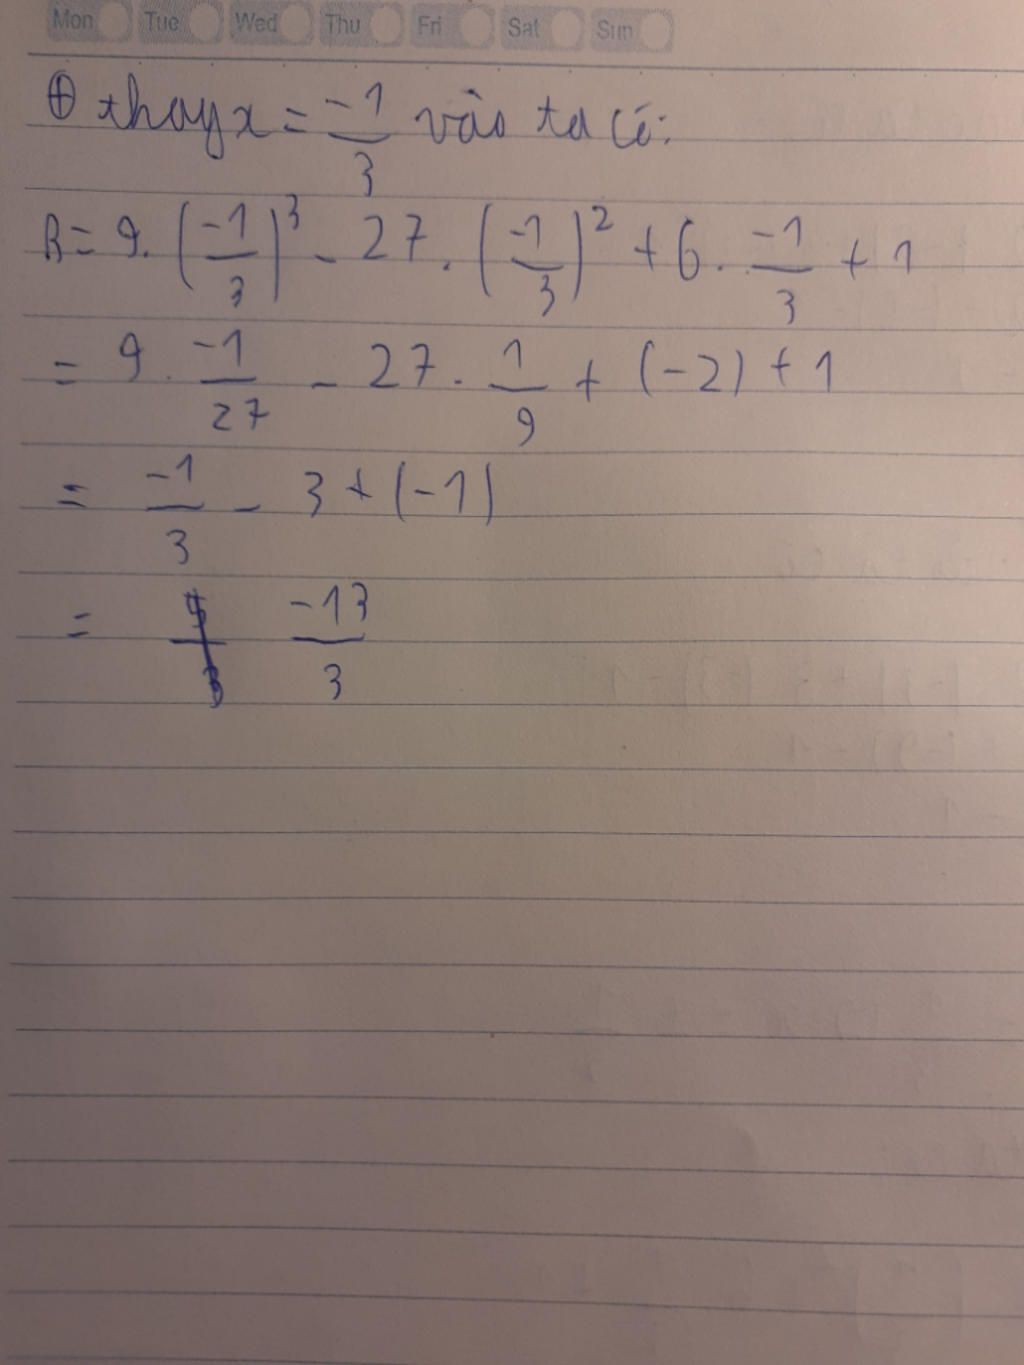 Mon Tue Wed Thu Fri Sat Sun
⊕ thay x = -1/3 vào ta có:
B = 9. (-1/3)³ - 27 . (-1/3)² + 6 . -1/3 + 1
= 9 . -1/27 - 27 . 1/9 + (-2) + 1
= -1/3 - 3 + (-1)
= -13/3